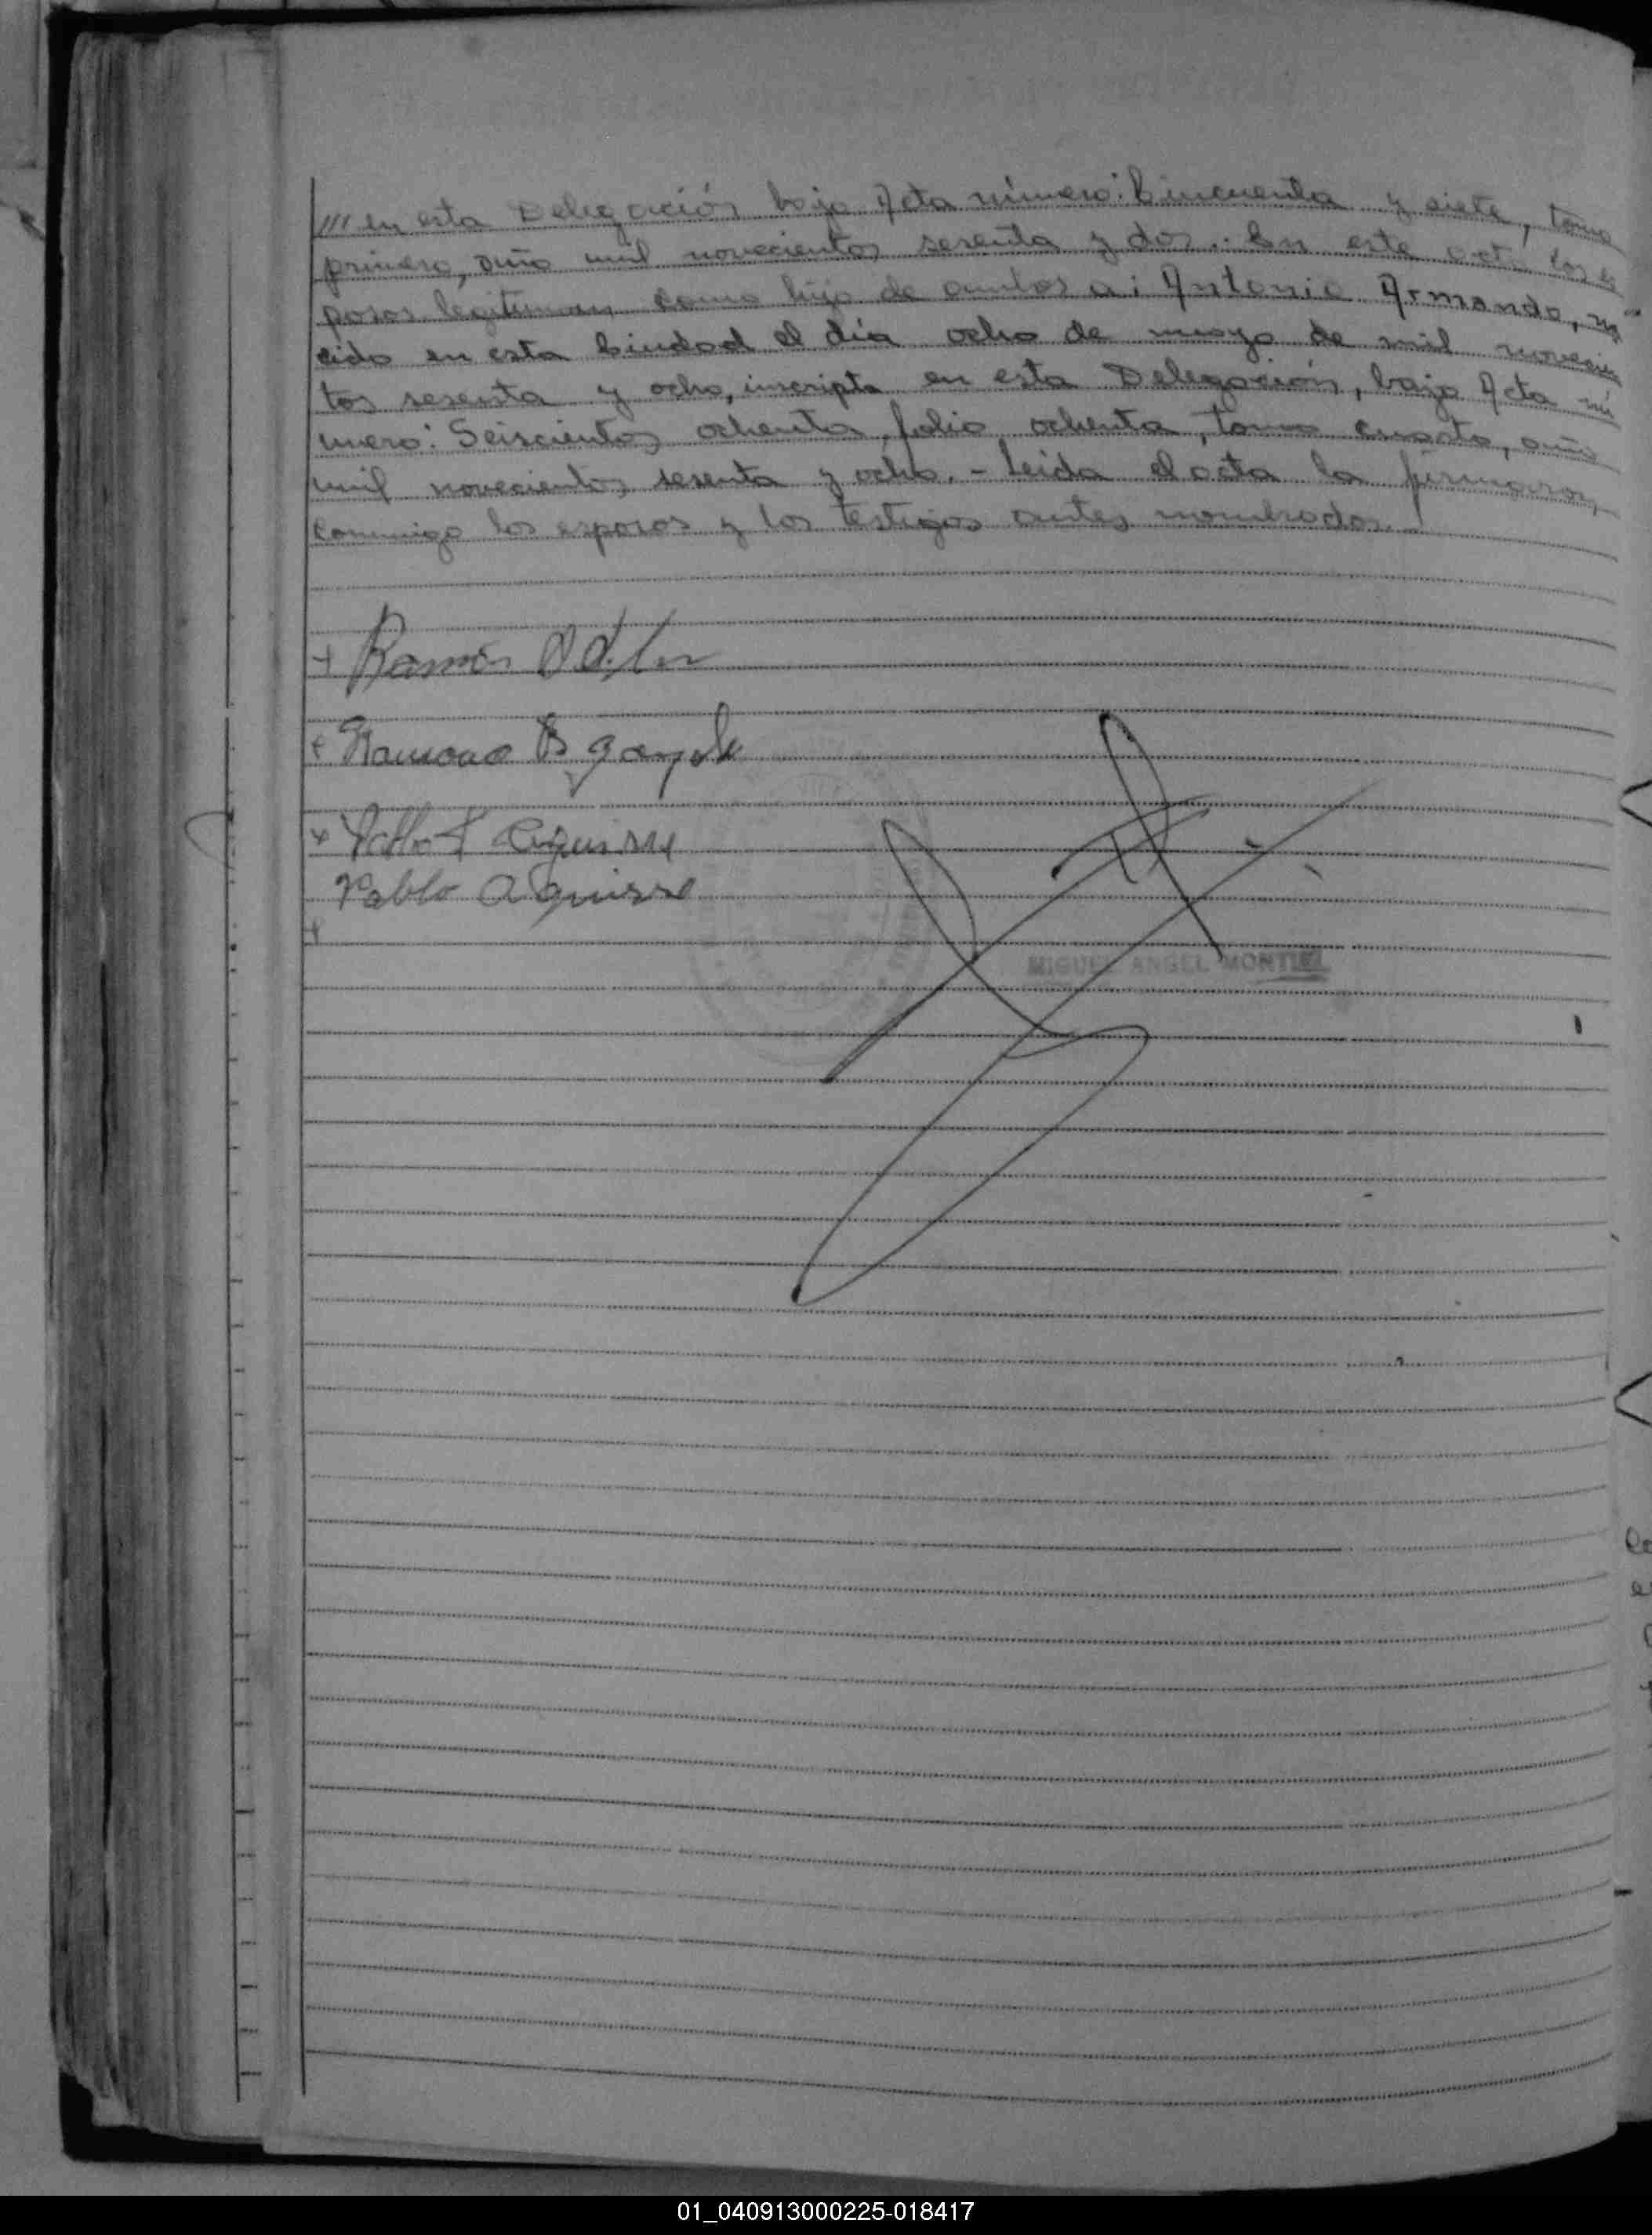 /// en esta Delegación bajo Acta número: Cincuenta y siete, tomo
primero, año mil novecientos sesenta y dos.. En este acto los es
posos legitiman como hijo de ambos a: Antonio Armando, na
cido en esta Ciudad el día ocho de mayo de mil novecien
tos sesenta y ocho, inscripta en esta Delegación, bajo Acta nú
mero: Seiscientos ochenta, folio ochenta, tomo cuarto, año
mil novecientos sesenta y ocho. - Leida el acta la firmaron
conmigo los esposos y los testigos antes nombrados.
+ Ramón
+ Ramona B
+ Pablo
Pablo Aguirre
+
MIGUEL ANGEL MONTIEL
01_040913000225-018417